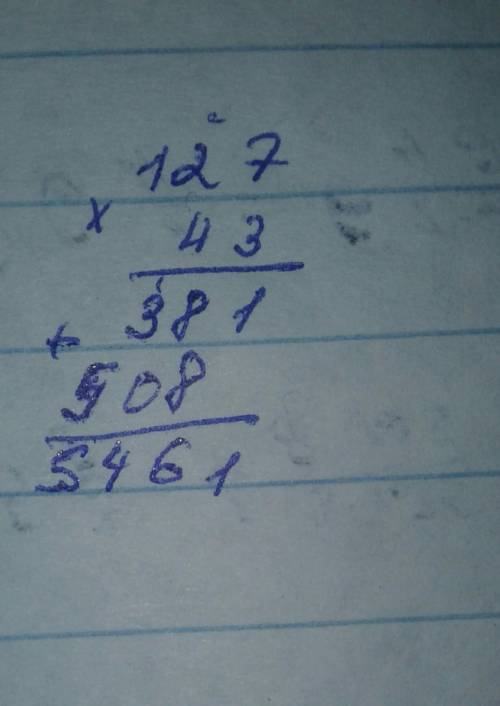 127
x 43
381
+
508
5461